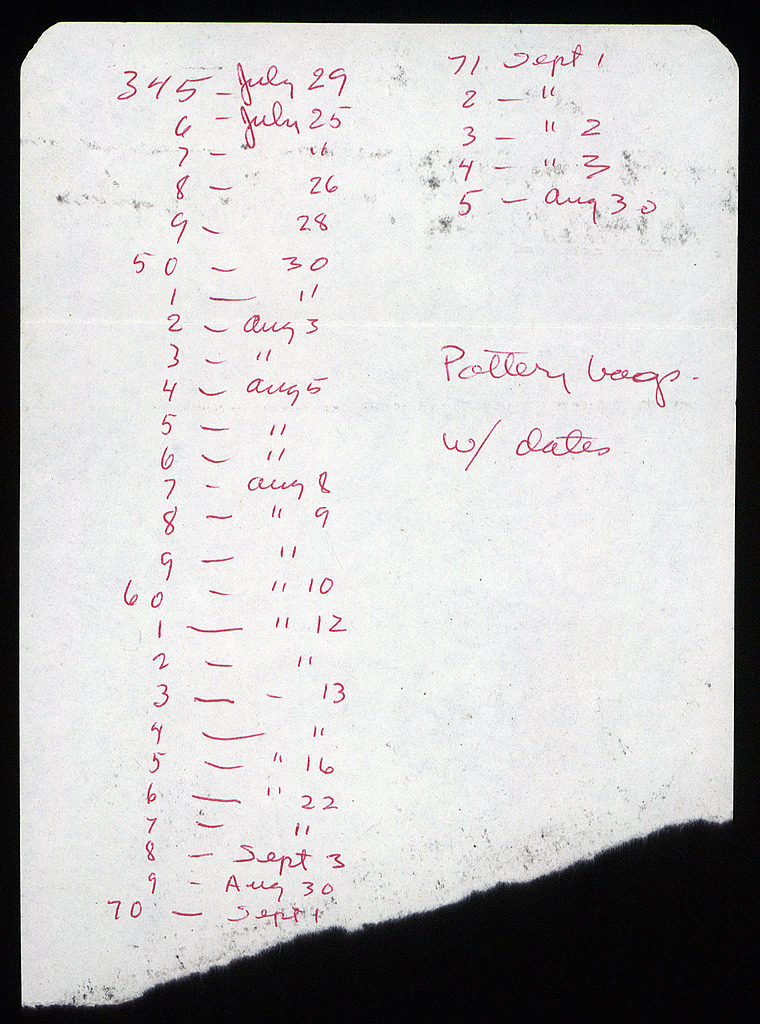 345 - July 29
6 - July 25
7 - "
8 - 26
9 - 28
50 - 30
1 - "
2 - Aug 3
3 - "
4 - Aug 5
5 - "
6 - "
7 - Aug 8
8 - " 9
9 - "
60 - " 10
1 - " 12
2 - "
3 - - 13
4 - "
5 - " 16
6 - " 22
7 - "
8 - Sept 3
9 - Aug 30
70 - Sept 1
71 Sept 1
2 - "
3 - " 2
4 - " 3
5 - Aug 30
Pottery bags.
w/ dates